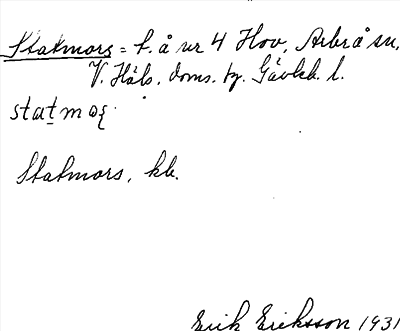 Statmors = t. å nr 4 Hov, Arbrå sn,
V. Häls. doms. tg. Gävleb. l.
statmɷʂ.
Statmors, kb.
Erik Eriksson 1931